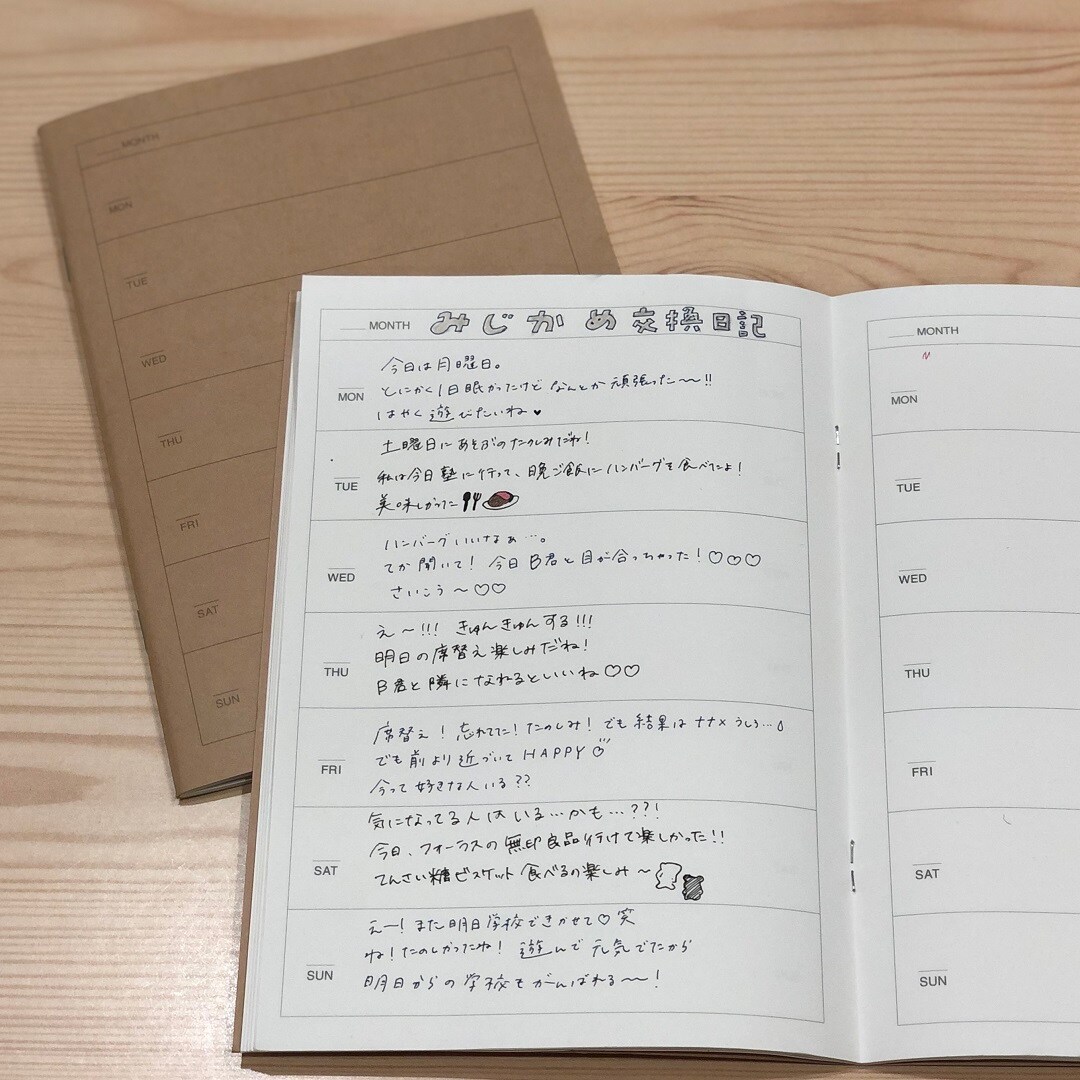 MONTH
MON
TUE
WED
THU
FRI
SAT
SUN
MONTH みじかめ交換日記
MON
今日は月曜日。
とにかく1日眠かったけど なんとか頑張った〜!!
はやく遊びたいね♥
TUE
土曜日にあそぶのたのしみだね!
私は今日塾に行って、晩ご飯にハンバーグを食べたよ!
美味しかった
WED
ハンバーグいいなぁ…。
てか聞いて! 今日B君と目が合っちゃった!♡♡♡
さいこう〜♡♡
THU
え〜!!! きゅんきゅんする!!!
明日の席替え楽しみだね!
B君と隣になれるといいね♡♡
FRI
席替え!忘れてた!たのしみ!でも結果はナナメうしろ…
でも前より近づいてHAPPY
今って好きな人いる??
SAT
気になってる人はいる…かも…??!
今日、フォーラスの無印良品行けて楽しかった!!
てんさい糖ビスケット食べるの楽しみ〜
SUN
えー!また明日学校できかせて♡笑
ね!たのしかったね! 遊んで元気でたから
明日からの学校もがんばれる〜!
MONTH
MON
TUE
WED
THU
FRI
SAT
SUN